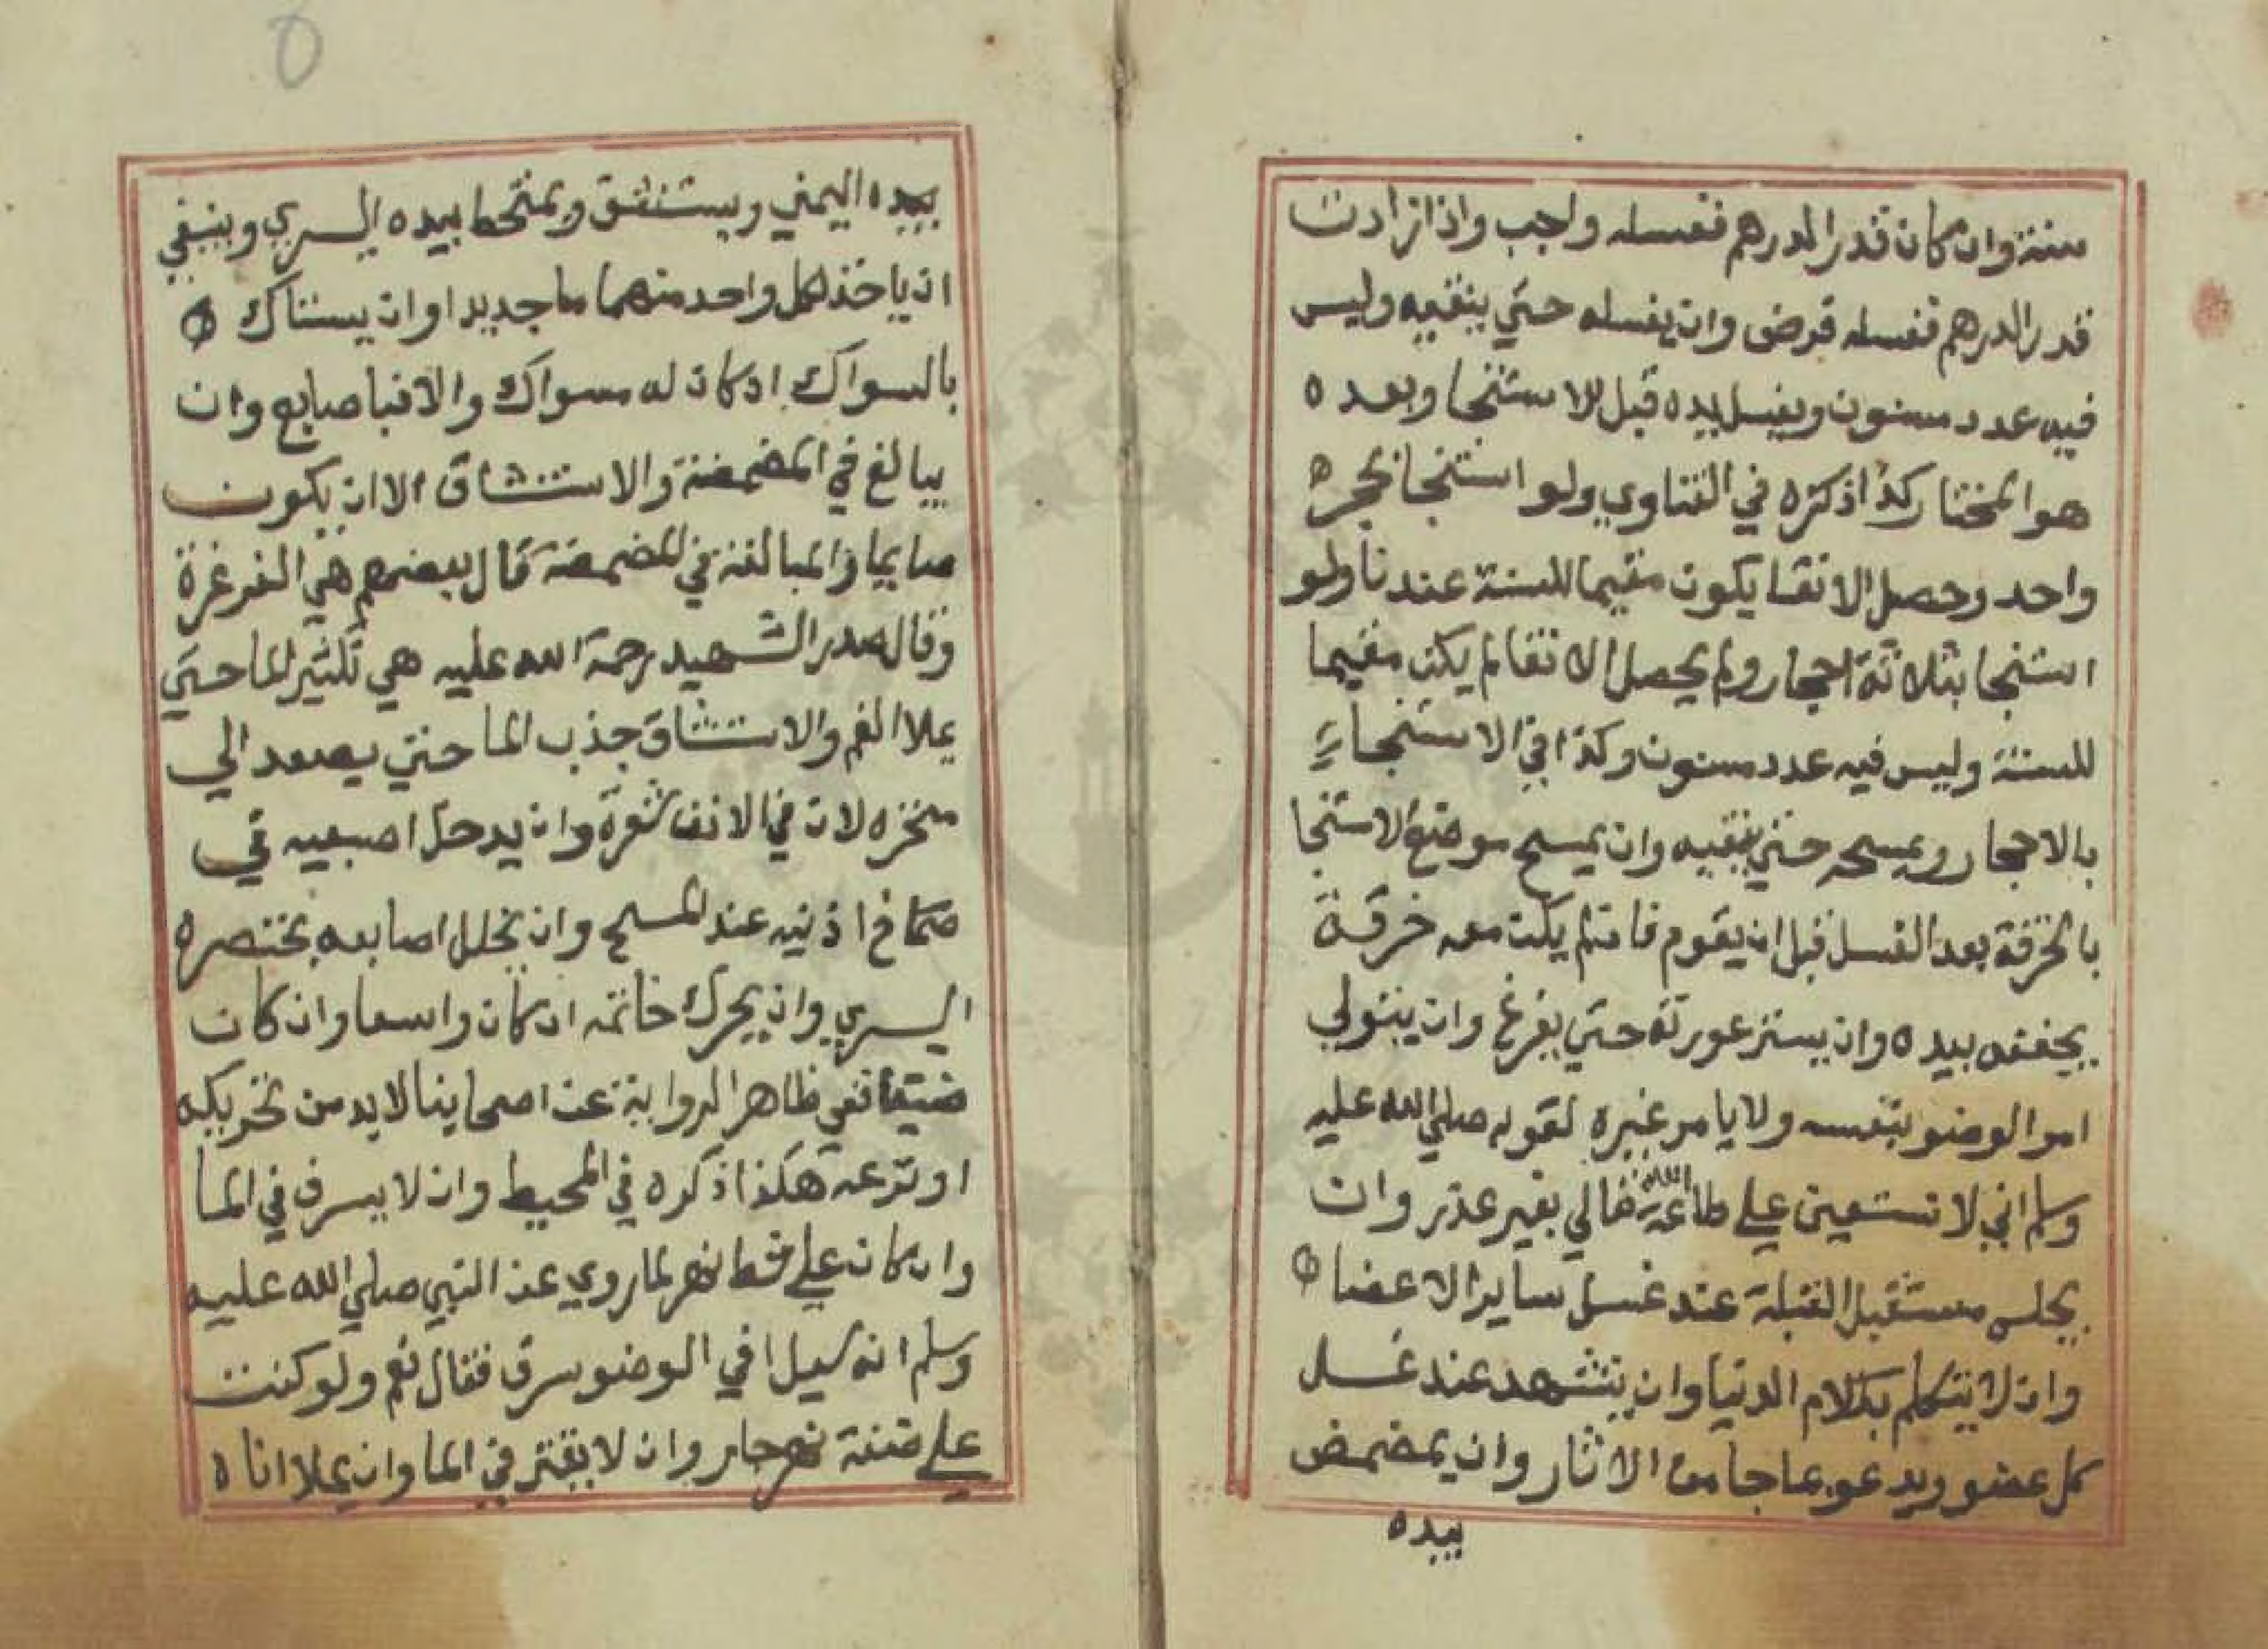 سنة وان كان قدر الدرهم فغسله واجب واذا زادت
قدر الدرهم فغسله فرض وان يغسله حتي ينقيه وليس
فيه عدد مسنون ويغسل يده قبل الاستنجا وبعده
هو المختار كذا ذكره في الفتاوي ولو استنجا بحجر
واحد وحصل الانقا يكون مقيما للسنة عندنا ولو
استنجا بثلاثة احجار ولم يحصل الانقا لم يكن مقيما
للسنة وليس فيه عدد مسنون وكذا في الاستنجاء
بالاحجار ويمسحه حتي ينقيه وان يمسح موضع الاستنجا
بالخرقة بعد الغسل قبل ان يقوم فان لم يكن معه خرقة
يجففه بيده وان يستر عورته حتي يفرغ وان يتولي
امر الوضو بنفسه ولا يامر غيره لقوله صلي الله عليه
وسلم اني لا نستعين علي طاعة الله تعالي بغير عذر وان
يجلس مستقبل القبلة عند غسل ساير الاعضا
وان لا يتكلم بكلام الدنيا وان يتشهد عند غسل
كل عضو ويدعو بما جا من الاثار وان يمضمض
بيده
بيده اليمني ويستنشق ويمتخط بيده اليسري وينبغي
ان ياخذ لكل واحد منهما ما جديدا وان يستاك
بالسواك ان كان له سواك والا فبا صابع وان
يبالغ في المضمضة والاستنشاق الا ان يكون
صايما والمبالغة في المضمضة قال بعضهم هي الغرغرة
وقال صدر الشهيد رحمة الله عليه هي تكثير الما حتي
يملا الفم والاستنشاق جذب الما حتي يصعد الي
منخره لان في الانف ثغرة وان يدخل اصبعيه في
صماخ اذنيه عند المسح وان يخلل اصابعه بخنصره
اليسري وان يحرك خاتمه ان كان واسعا وان كان
ضيقا ففي ظاهر الرواية عن اصحابنا لابد من تحريكه
او نزعه هكذا ذكره في المحيط وان لا يسرف في الما
وان كان علي شط نهر لما روي عن النبي صلي الله عليه
وسلم انه سيل افي الوضو سرف فقال نعم ولو كنت
علي ضفة نهر جار وان لا يقتر في الما وان يملا اناه